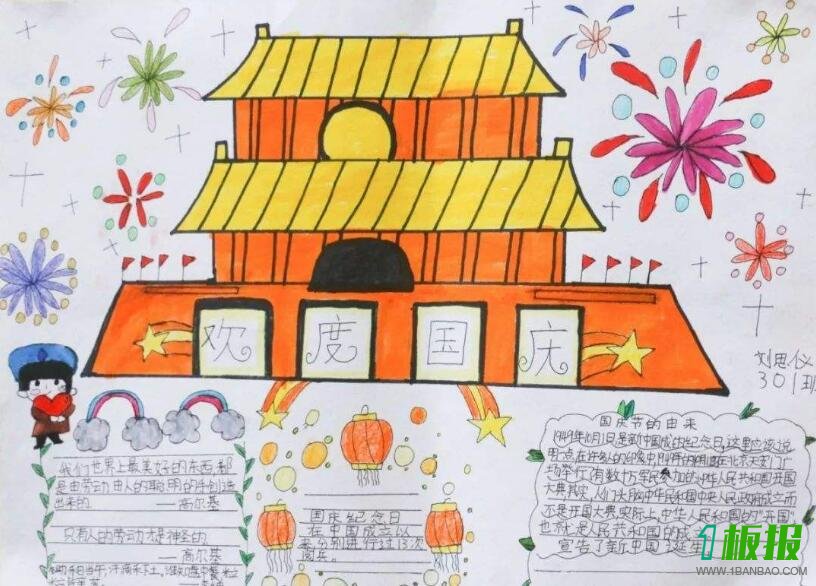 欢度国庆
刘思仪
301班
我们世界上最美好的东西,都
是由劳动,由人的聪明的手创造
出来的
——高尔基
只有人的劳动才是神圣的
——高尔基
锄禾日当午,汗滴禾下土。谁知盘中餐,粒
国庆纪念日
在中国成立以
来分别进行过13次
阅兵。
国庆节的由来
1949年10月1日是新中国成的纪念日,这里应该说
明一点,在许多人的印象中,1949年的
在北京天安门广
场举行了有数十万军民参加的中华人民共和国开国
大典。其实,人们头脑中
中华人民共和国中央人民政府成立
不是开国大典。实际上,中华人民共和国的"开国"
也就是人民共和国的成
宣告了新中国诞生
1板报
WWW.1BANBAO.COM